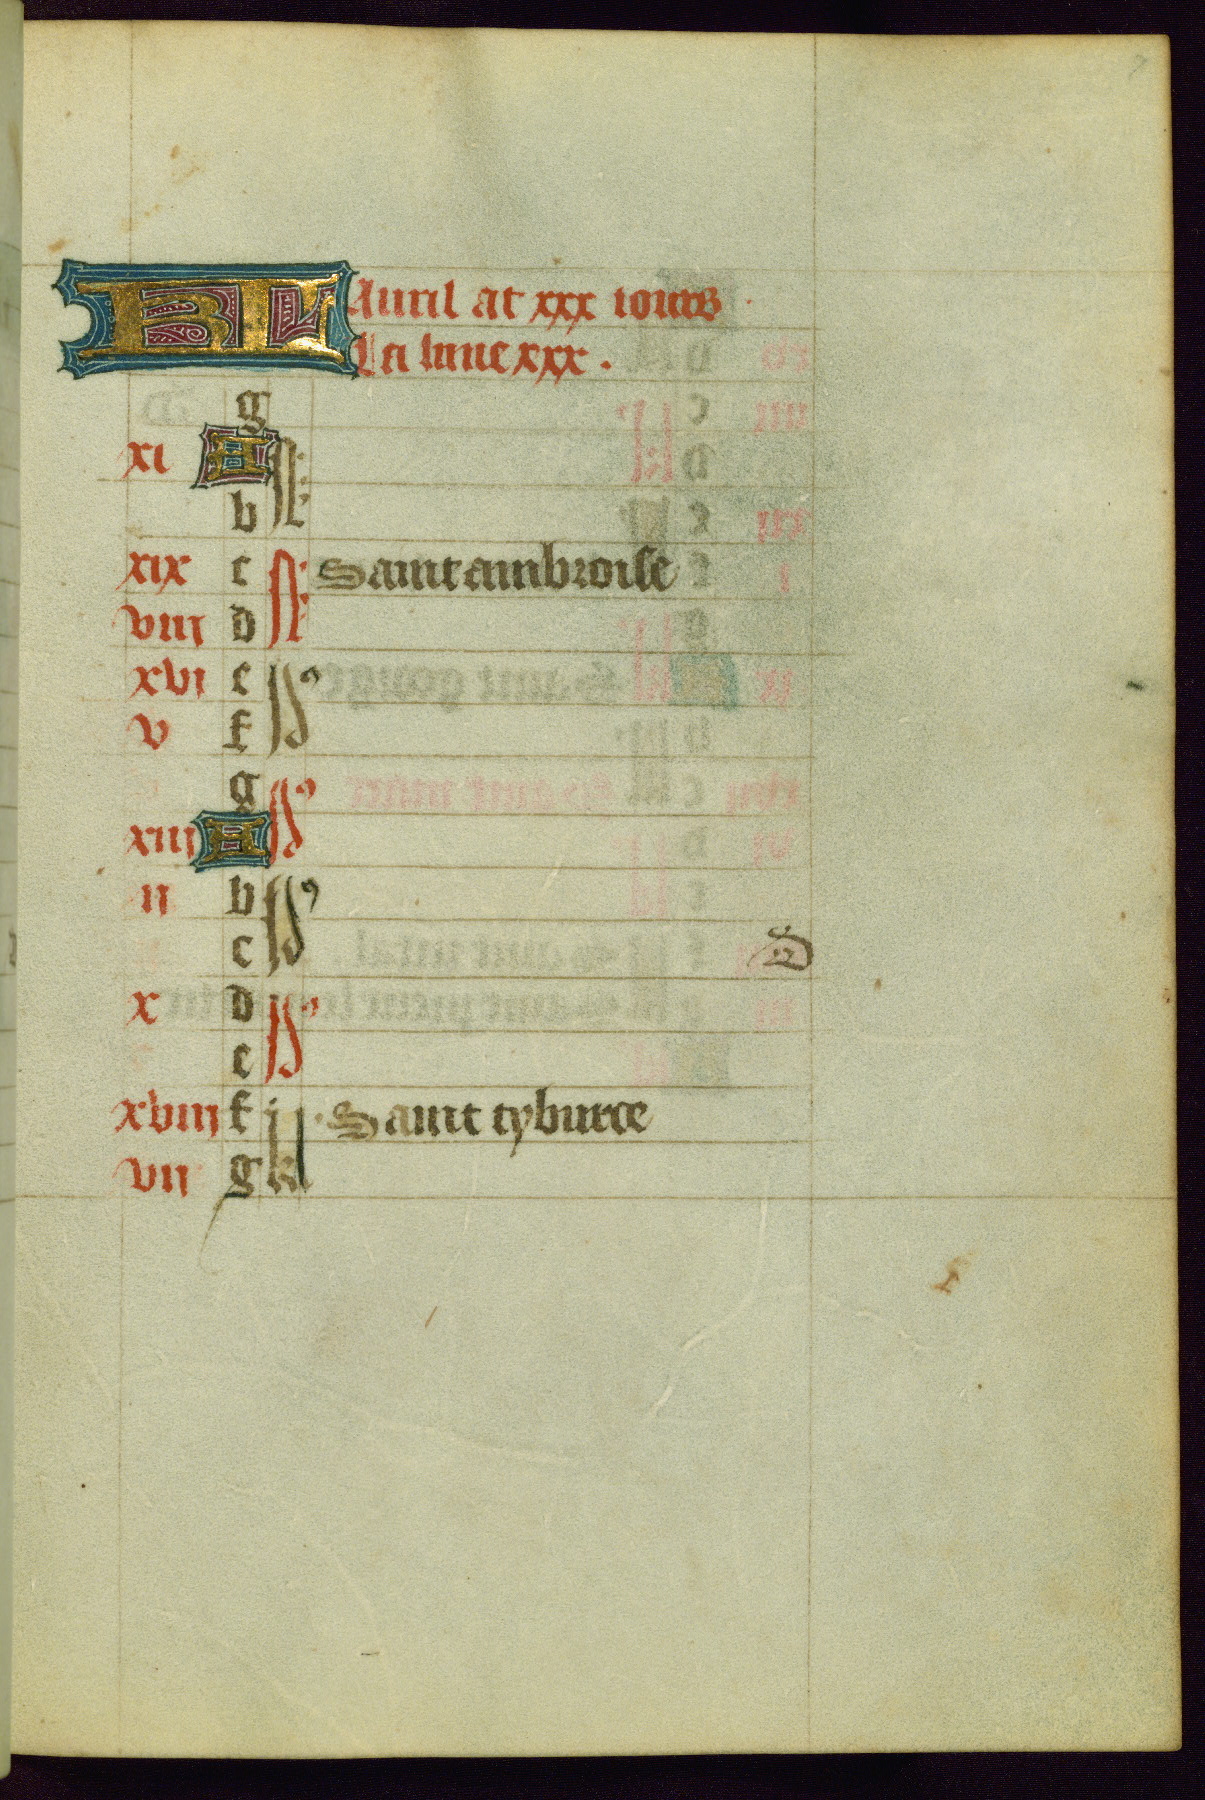 KL Auril at xxx iours .
La lune xxx .
g
xi A
b
xix c Saint ambroise
viii d
xvi e
v f
g
xiii A
ii b
c
x d
e
xviii f Saint tyburce
vii g